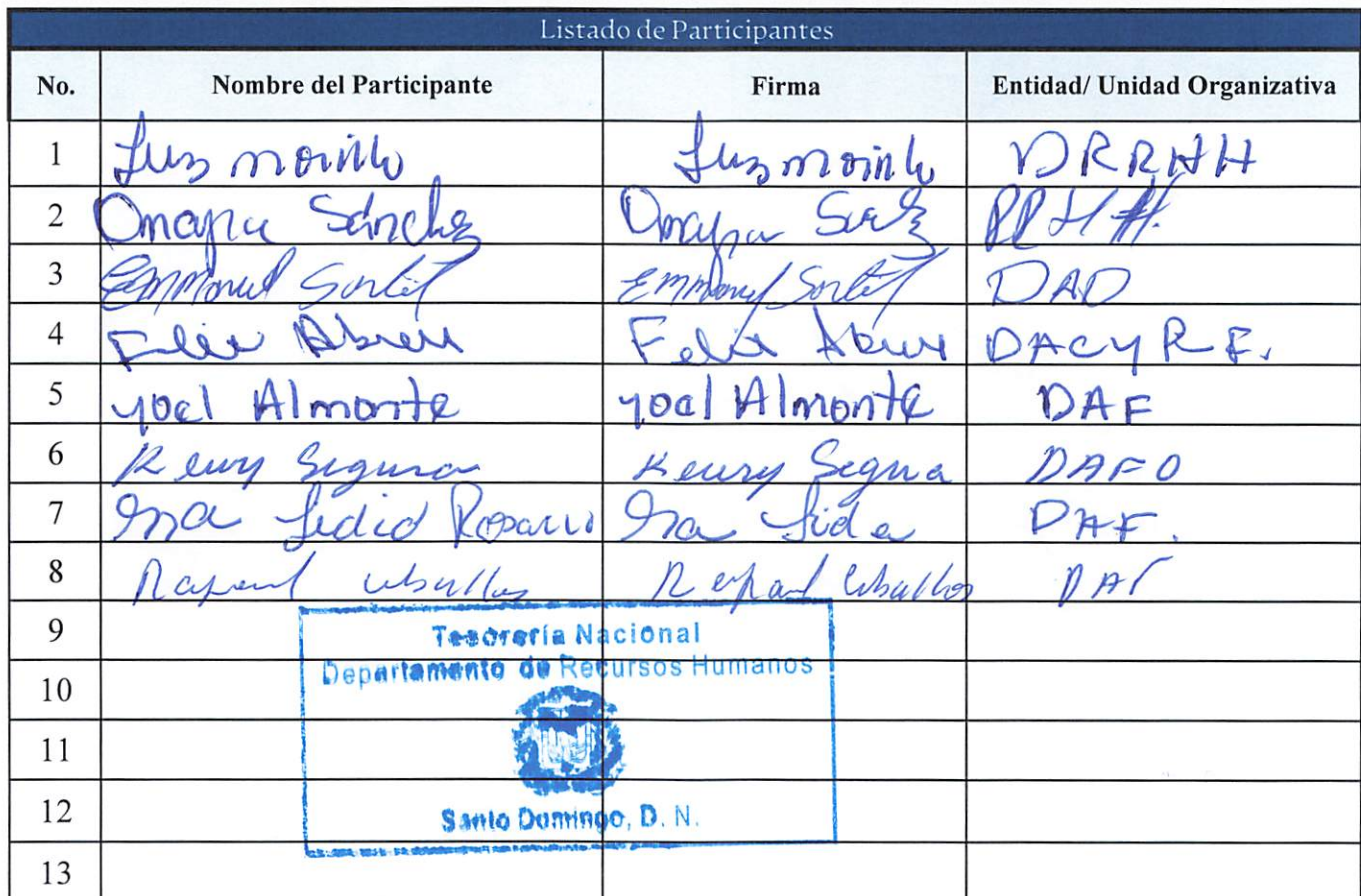 Listado de Participantes
No. Nombre del Participante Firma Entidad/ Unidad Organizativa
1 Luz morillo Luz morillo DRRHH
2 Omayra Sánchez Omayra RRHH.
3 Emmanuel Emmanuel DAD
4 Felix Abreu Felix Abreu DACyRF.
5 yoel Almonte yoel Almonte DAF
6 Keury Segura Keury Segura DAFO
7 Lidia Rosario Lidia DAF.
8 Rafael Ceballos Rafael Ceballos DAF
9
Tesorería Nacional
Departamento de Recursos Humanos
10
11
12
Santo Domingo, D. N.
13